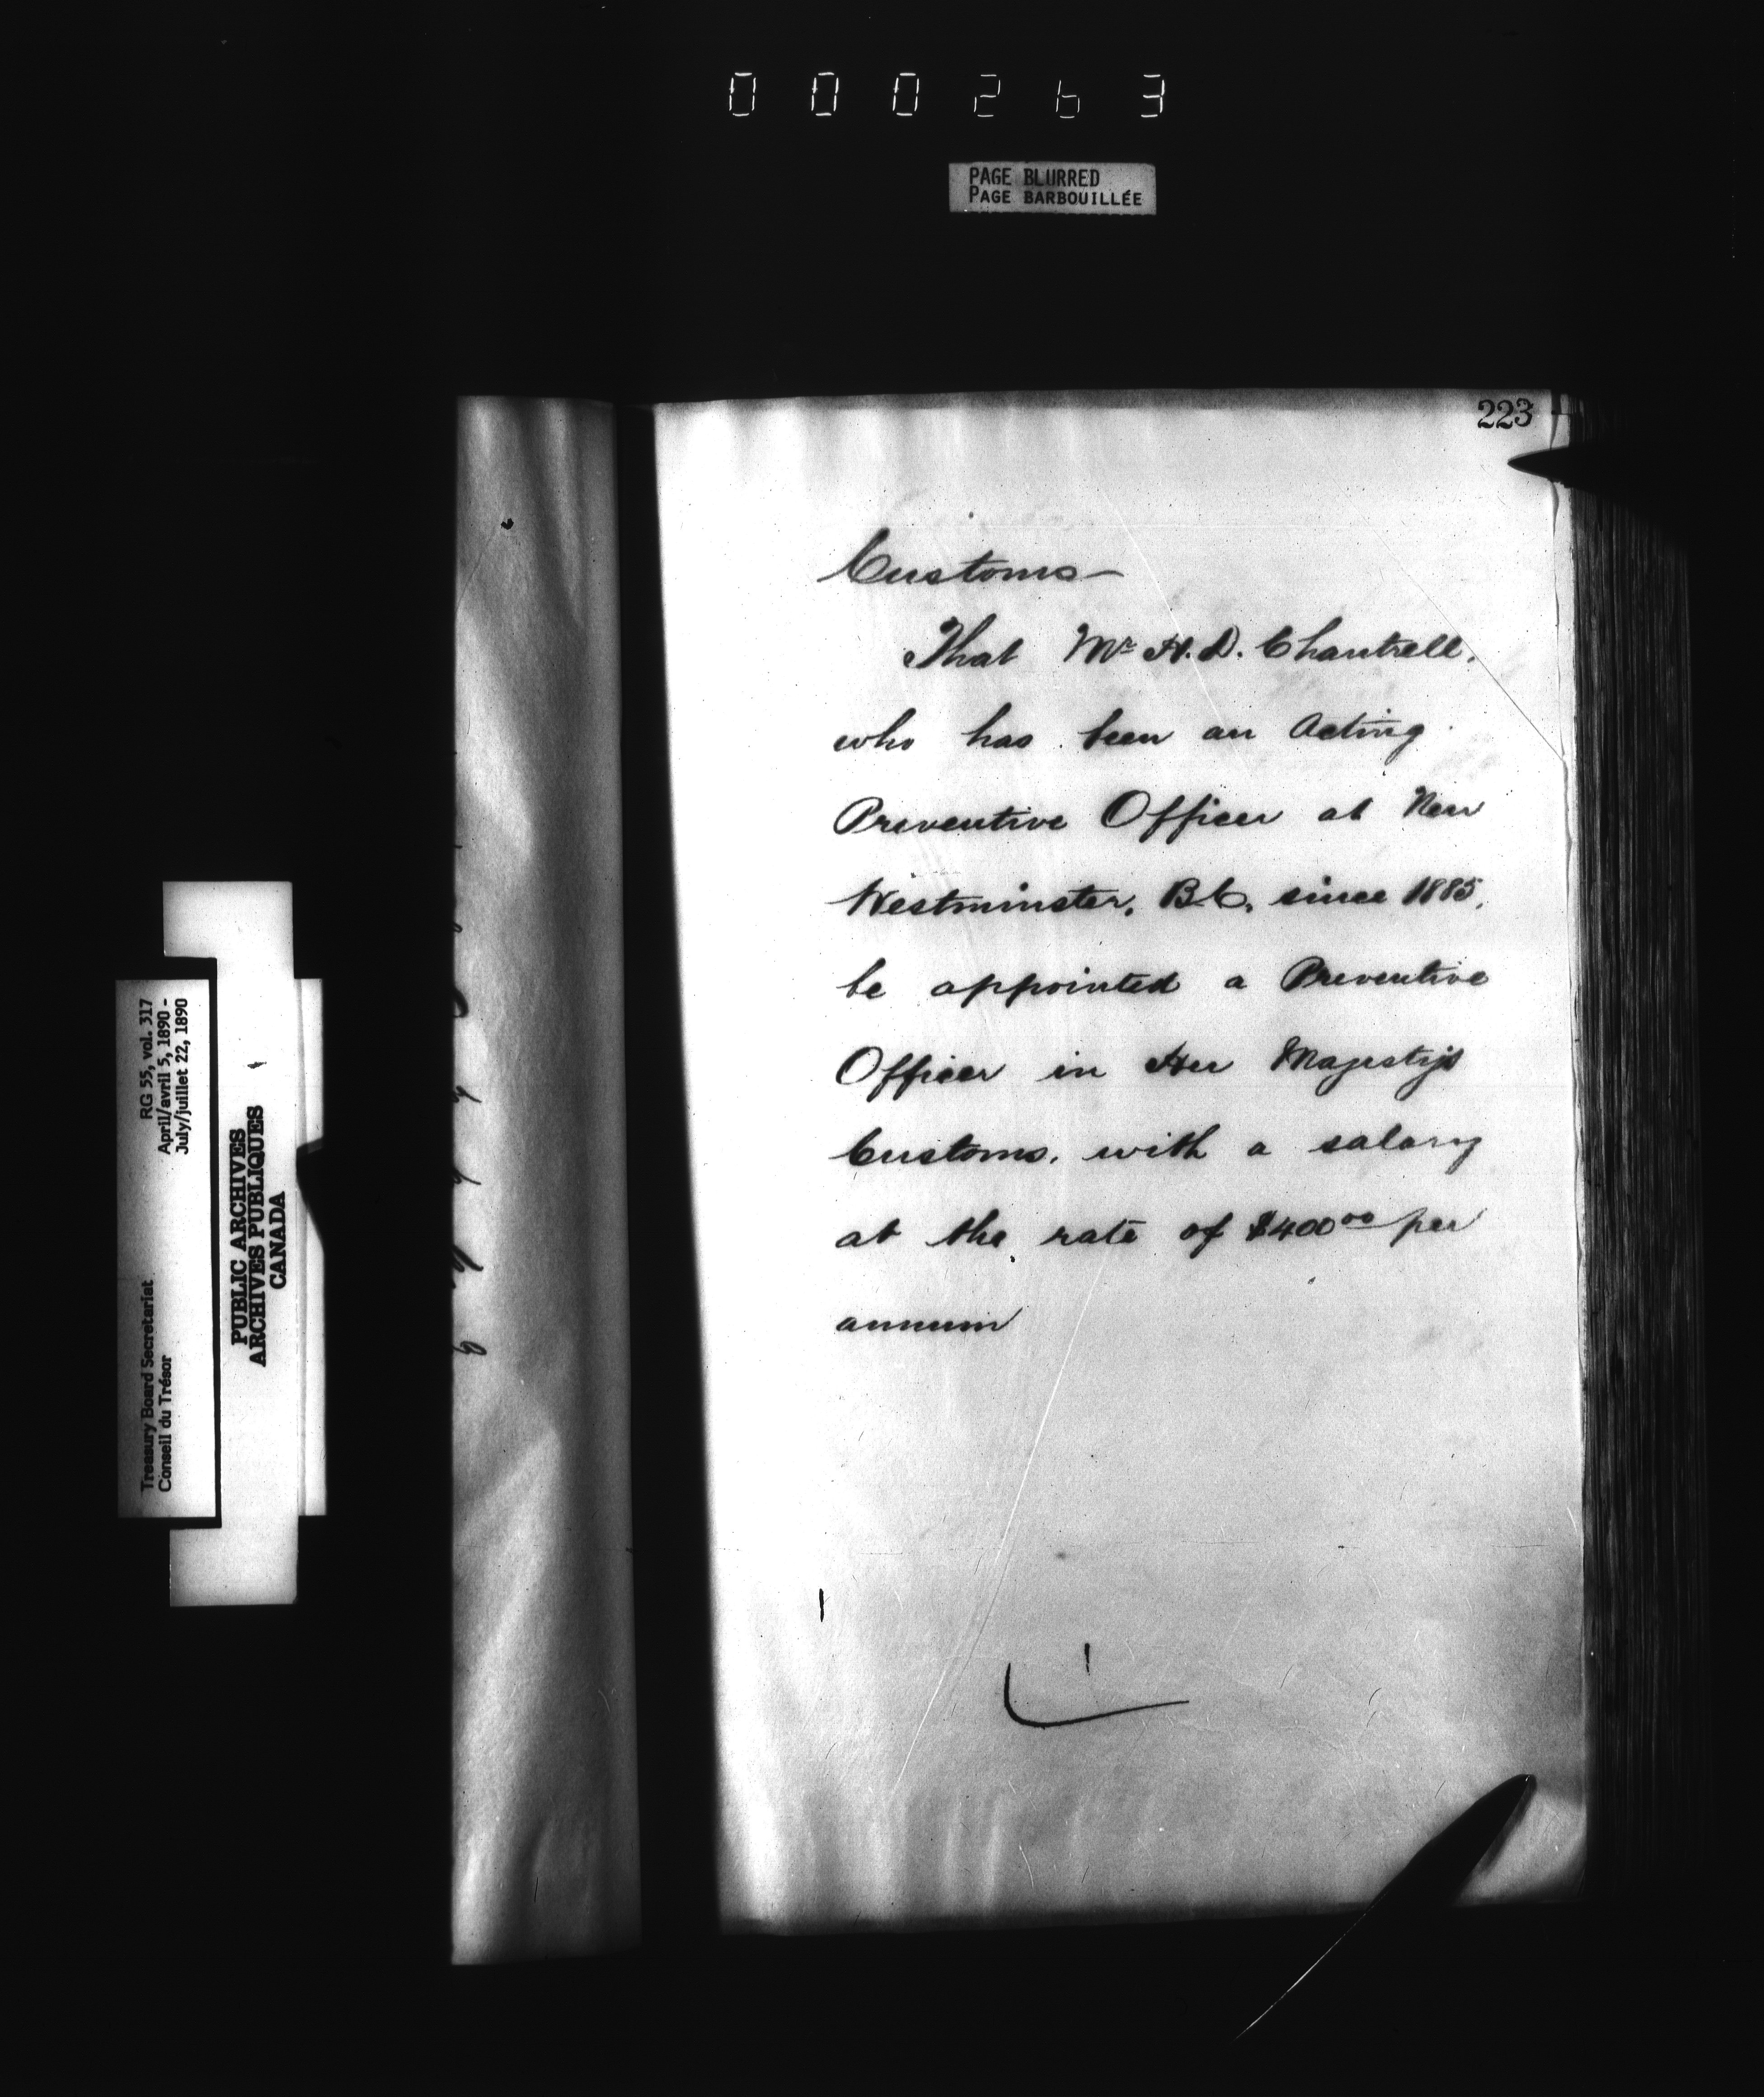 000263
PAGE BLURRED
PAGE BARBOUILLÉE
223
Customs—
That Mr H. D. Chantrell,
who has been an Acting
Preventive Officer at New
Westminster, B.C, since 1885,
be appointed a Preventive
Officer in Her Majesty's
Customs, with a salary
at the rate of $400 00 per
annum
RG 55, vol. 317
April/avril 5, 1890 -
July/juillet 22, 1890
Treasury Board Secretariat
Conseil du Trésor
PUBLIC ARCHIVES
ARCHIVES PUBLIQUES
CANADA